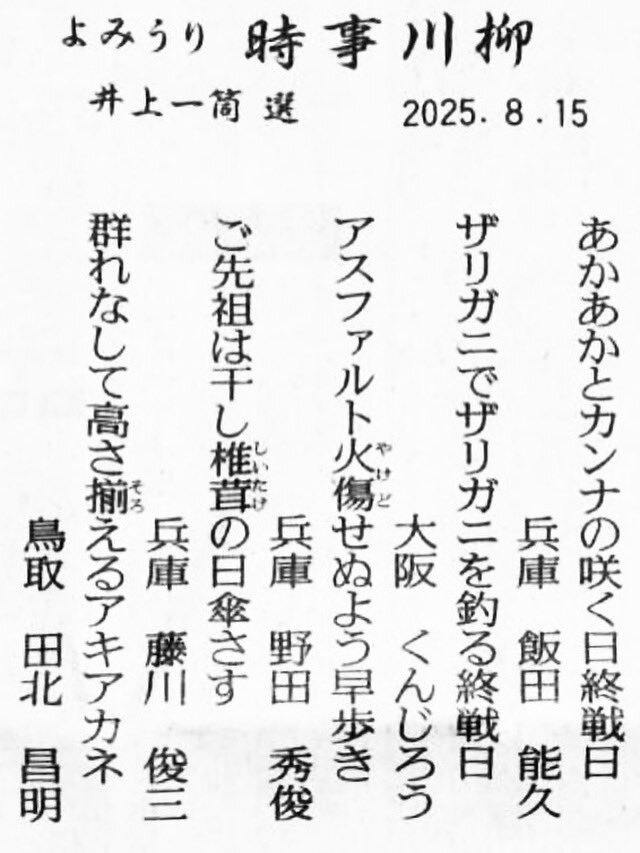 よみうり 時事川柳
井上一筒 選 2025.8.15
あかあかとカンナの咲く日終戦日
兵庫 飯田 能久
ザリガニでザリガニを釣る終戦日
大阪 くんじろう
アスファルト火傷せぬよう早歩き
やけど
兵庫 野田 秀俊
ご先祖は干し椎茸の日傘さす
しいたけ
兵庫 藤川 俊三
群れなして高さ揃えるアキアカネ
そろ
鳥取 田北 昌明